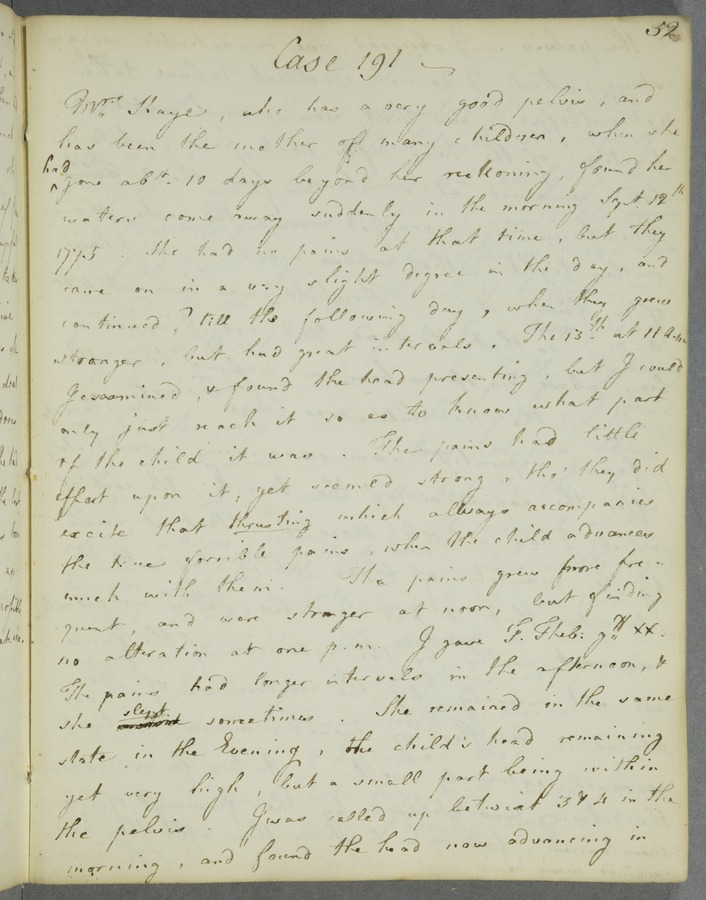 52
Case 191
Mrs. Kaye, who has a very good pelvis, and
has been the mother of many children, when she
had
gone abt. 10 days beyond her reckoning, found her
waters come away suddenly in the morning Sept. 12th
1775. She had no pains at that time, but they
came on in a very slight degree in the day, and
continued, till the following day, when they grew
stronger, but had great intervals. The 13th at 11 a.m
I examined, & found the head presenting, but I could
only just reach it so as to know what part
of the child it was. The pains had little
effect upon it, yet seemed strong, tho' they did
excite that thrusting which always accompanies
the true forcible pains, when the child advances
much with them. The pains grew more fre-
quent, and were stronger at noon, but finding
no alteration at one p.m. I gave T. Theb. gtt xx.
The pains had longer intervals in the afternoon, &
she slept sometimes. She remained in the same
state in the Evening, the child's head remaining
yet very high, but a small part being within
the pelvis. I was called up betwixt 3 & 4 in the
morning, and found the head now advancing in